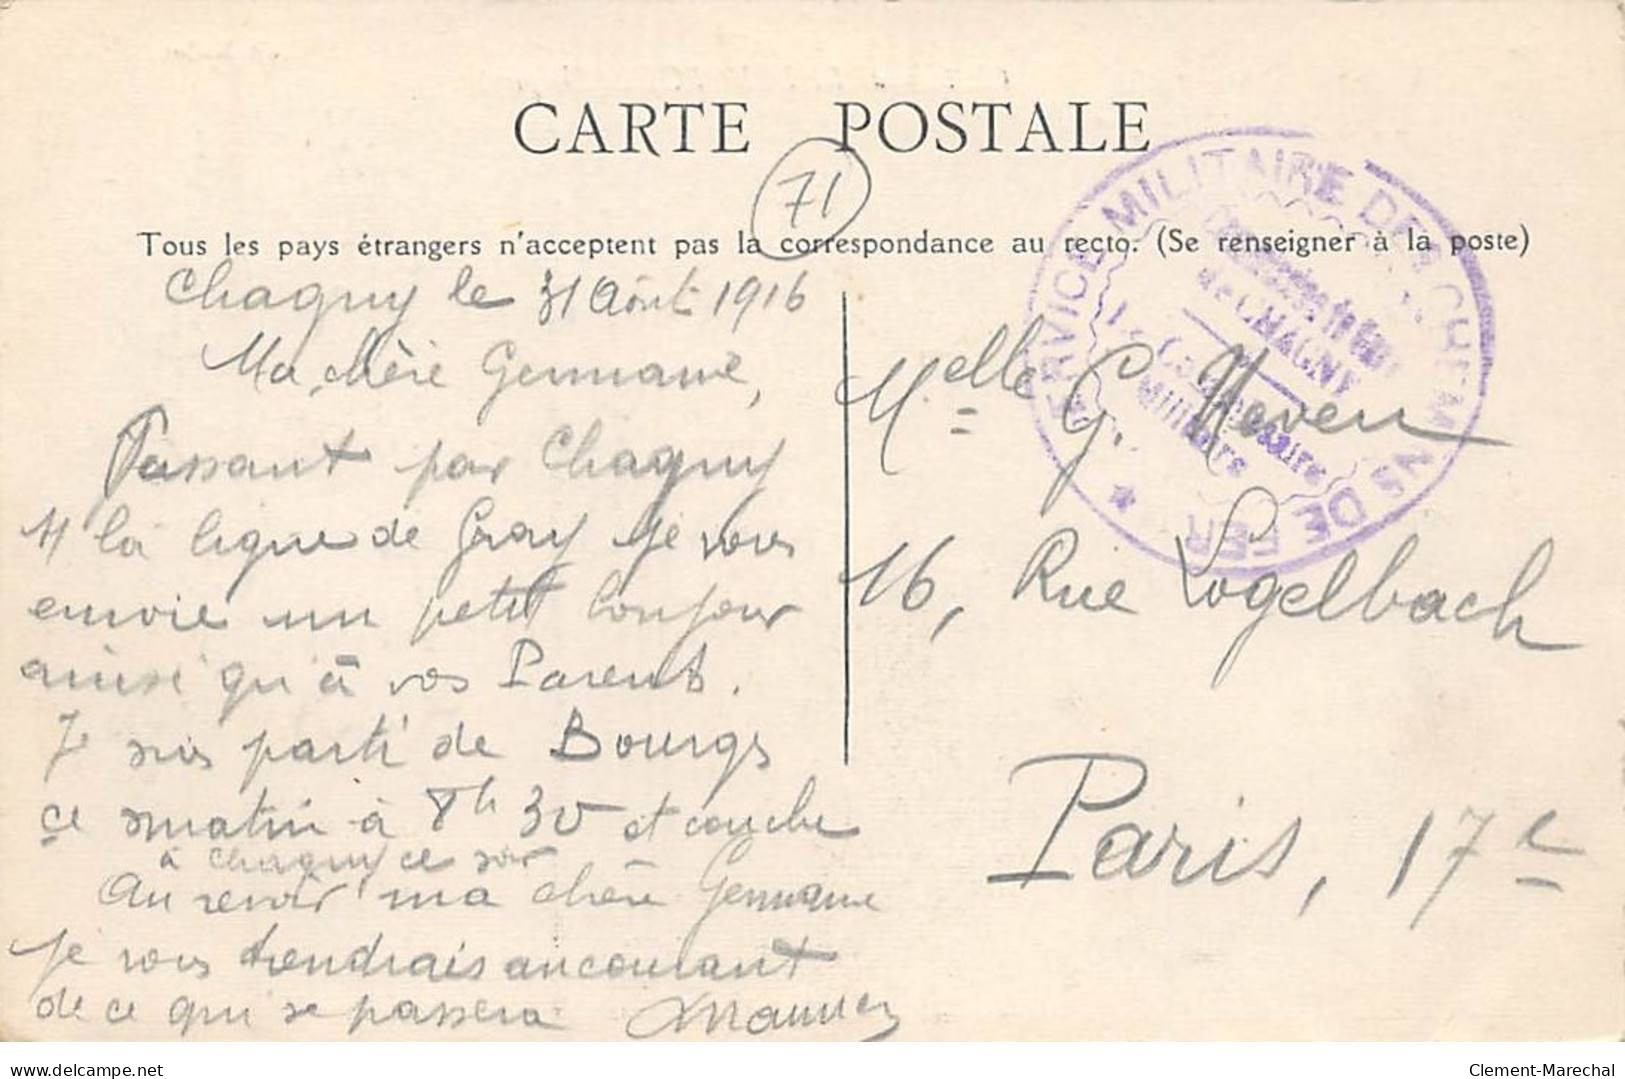 CARTE POSTALE
71
Tous les pays étrangers n'acceptent pas la correspondance au recto. (Se renseigner à la poste)
Chagny le 31 Août 1916
Ma chère Germaine,
Passant par Chagny
la ligne de Gray je vous
envoie un petit bonjour
ainsi qu'à vos Parents.
Je suis parti de Bourgs
ce matin à 8h 30 et couche
à Chagny ce soir
Au revoir ma chère Germaine
je vous tiendrais au courant
de ce qui se passera
SERVICE MILITAIRE DES CHEMINS DE FER
de CHAGNY
Le Commissaire
Militaire
Melle G. Neven
16, Rue Logelbach
Paris, 17e
delcampe.net
Clement-Marechal